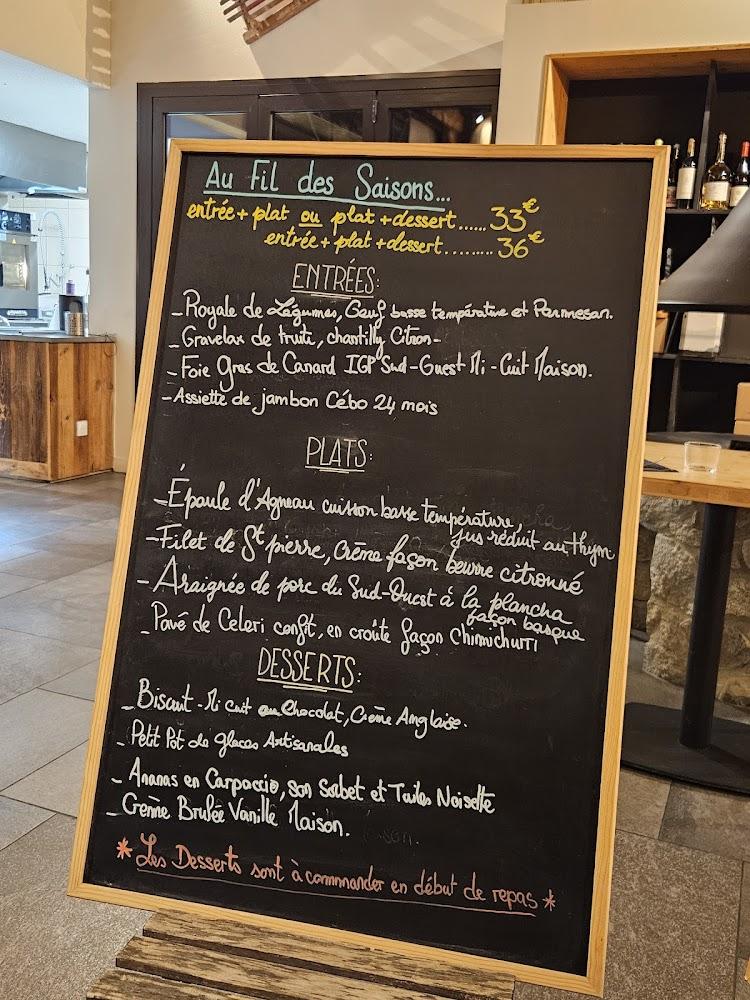 Au Fil des Saisons...
entrée + plat ou plat + dessert...... 33€
entrée + plat + dessert......... 36€
ENTRÉES:
- Royale de Légumes, Oeuf basse température et Parmesan.
- Gravelax de truite, chantilly Citron -
- Foie Gras de Canard IGP Sud-Ouest Mi-Cuit Maison.
- Assiette de jambon Cébo 24 mois
PLATS:
- Épaule d'Agneau cuisson basse température,
jus réduit au thym
- Filet de St pierre, Crème façon beurre citronné
- Araignée de porc du Sud-Ouest à la plancha
façon basque
- Pavé de Celeri confit, en croûte façon Chimichurri
DESSERTS:
- Biscuit Mi cuit au Chocolat, Crème Anglaise.
- Petit Pot de glaces Artisanales
- Ananas en Carpaccio, son Sorbet et Tuiles Noisette
- Crème Brulée Vanille Maison.
* Les Desserts sont à commander en début de repas *